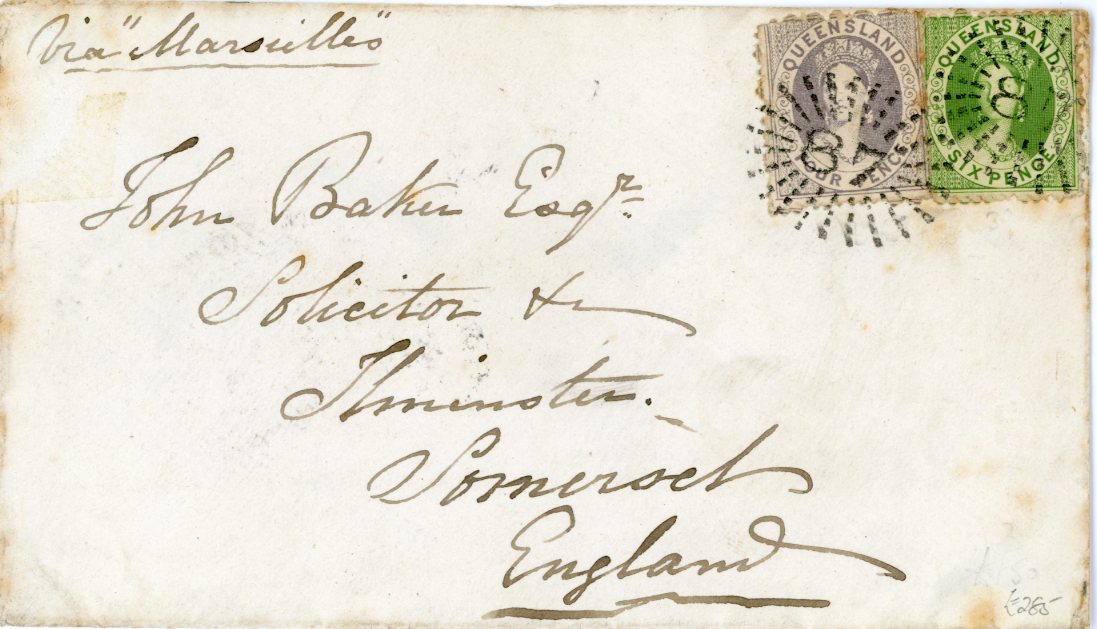 Via "Marseilles"
QUEENSLAND
FOUR PENCE
QUEENSLAND
SIX PENCE
John Baker Esqr
Solicitor &c
Ilminster.
Somerset
England
£265